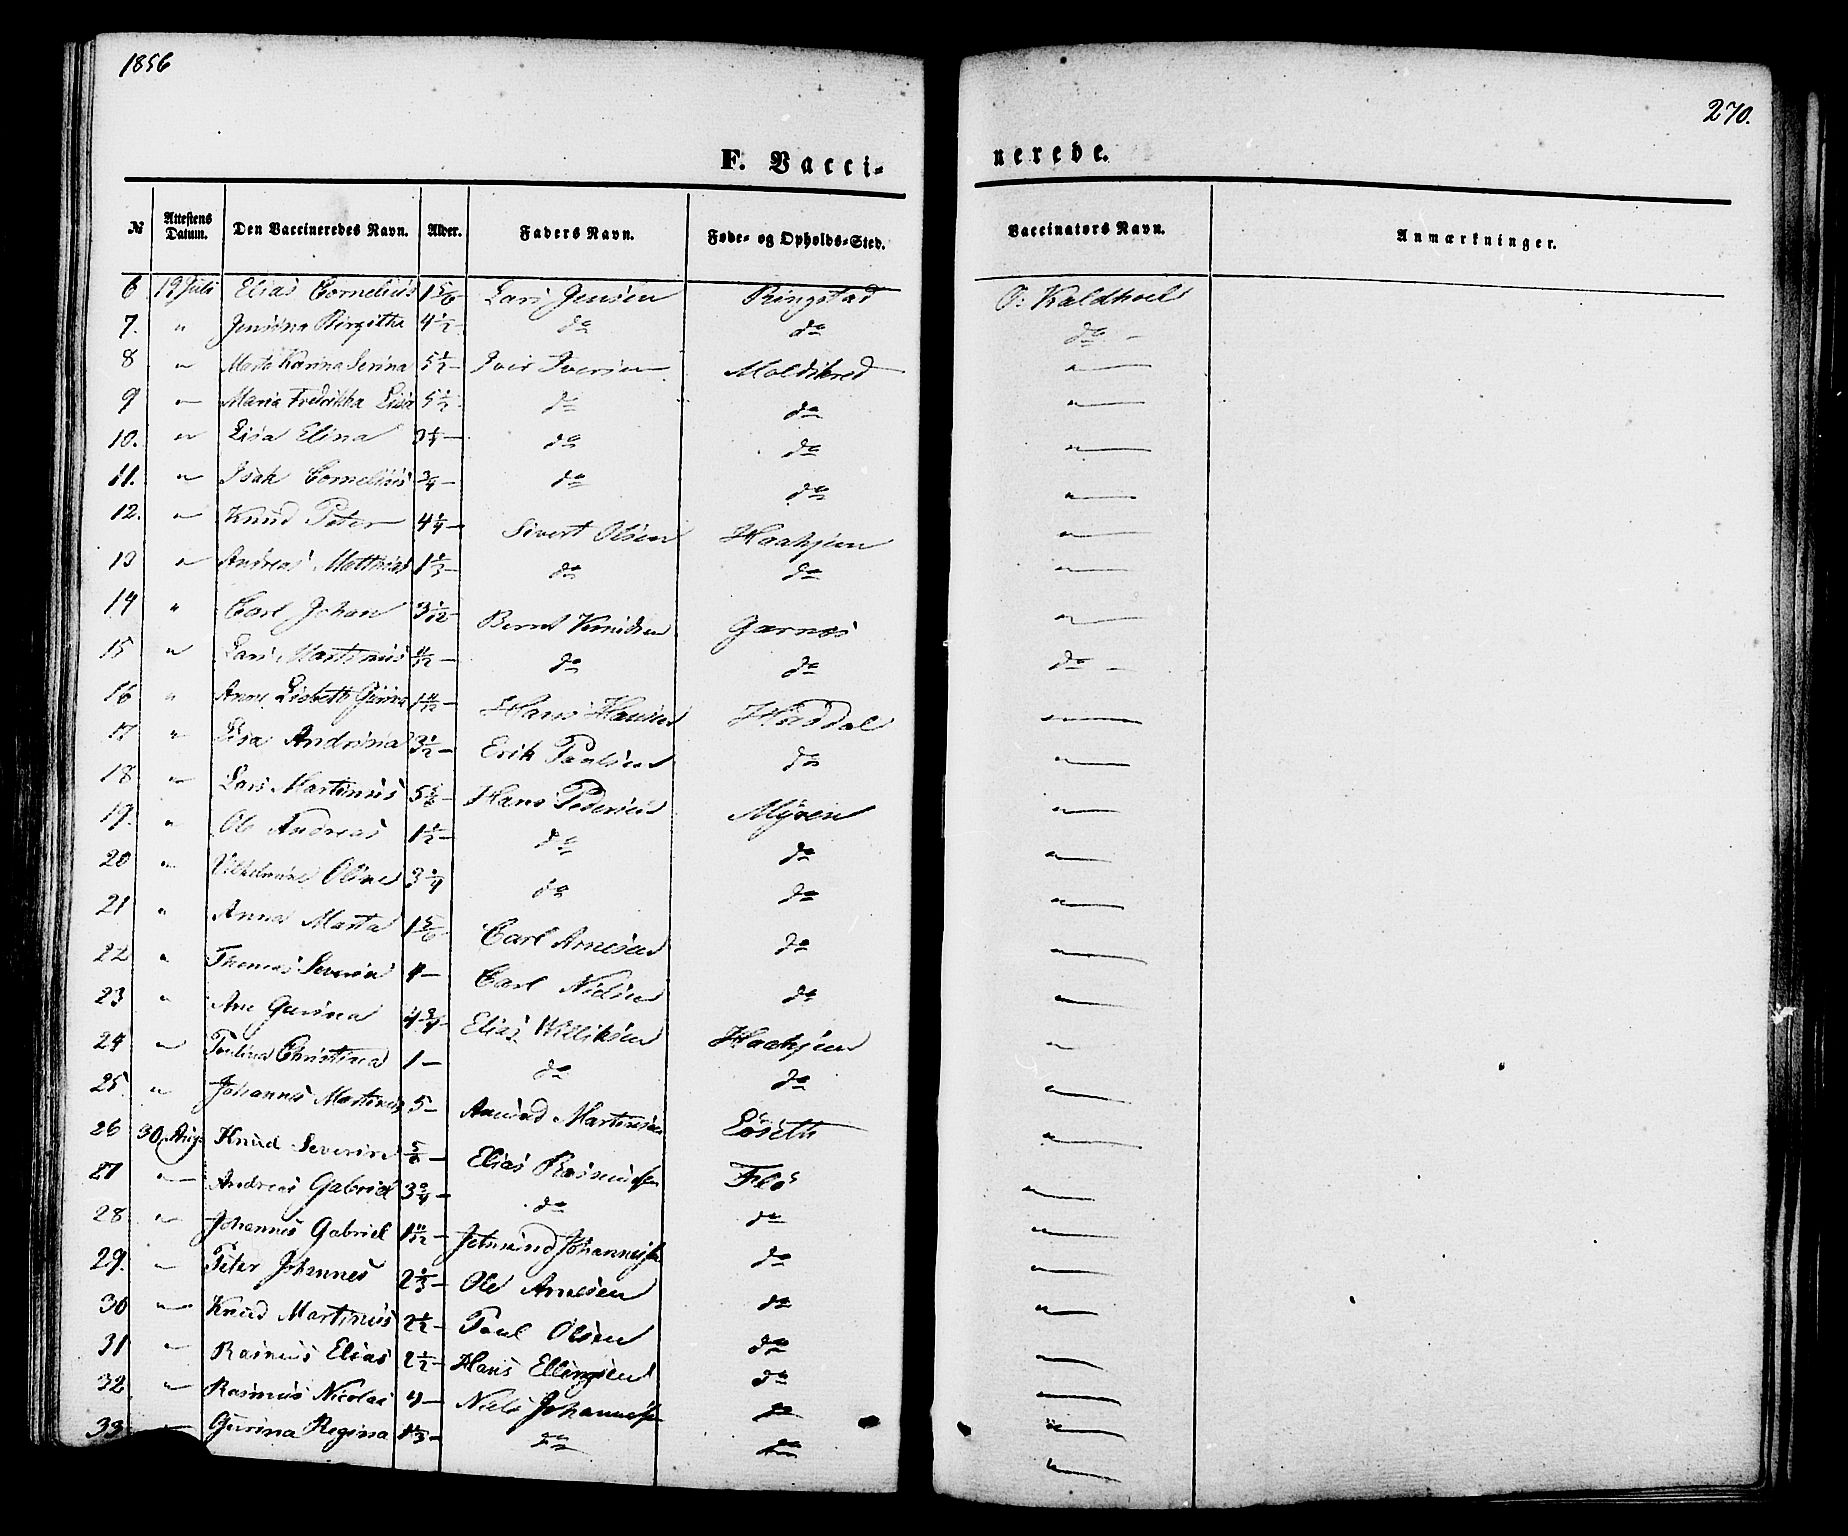 1856
270.
F. Vacci-
nerede.
№ Attestens Datum. Den Vaccineredes Navn. Alder. Faders Navn. Føde- og Opholds-Sted. Vaccinators Navn. Anmærkninger.
6 19 Juli Elias Cornelius 1 5/6 Lars Jensen Ringstad O: Kaldhoel
7. " Jensina Birgitha 4 1/2 do do do -
8 " Marta Karina Serina 5 1/2 Iver Iversen "
9 " Maria Fredrikka Lisa 5 1/2 do do "
10. " Lisa Elina do do "
11. " Isak Cornelius 3/4 do do "
12. " Knud Peter 4 1/4 - Sivert Olsen Haahjem "
13 " Andreas Matthias 1 1/3 - do do "
14 " Carl Johan 3 1/12 - Bernt Knudsen Garnes "
15 " Lars Martinus 11/12 - do do do -
16 " Anne Lisbeth 1 11/12 - Hans Hansen "
17 " Lisa Andrina 3 1/2 - Erik Paulsen do "
18 " Lars Martinus 5 5/6 - Hans Pedersen Myren "
19. " Ole Andreas 1 1/2 - do do "
20 " Vilhelmine Oline 3 1/4 do do "
21 " Anna Marta 1 5/6 Carl Arnesen do "
22 " Thomas Severin 4 - Carl Nielsen do "
23 " Ane Gurina 4 3/4 - Elias Williksen Haahjem "
24 " Paulina Christina 1 - do do "
25. " Johannes Martinus 5 - Amund Martinsen Løseth "
26 30 Aug: Knud Severin 5/6 - Elias Rasmussen Flø "
27 " Andreas Gabriel 3 3/4 - do do "
28 " Johannes Gabriel 1 11/12 - Jetmund Johannessen do "
29. " Peter Johannes 2 1/3 - Ole Arnesen do "
30 " Knud Martinus 2 1/2 - Paul Olsen do "
31 " Rasmus Elias 2 1/2 - Hans Ellingsen do "
32 " Rasmus Nicolai 4 - Niels Johannessen do "
33 " Gurina Regina 1 1/3 - do do "